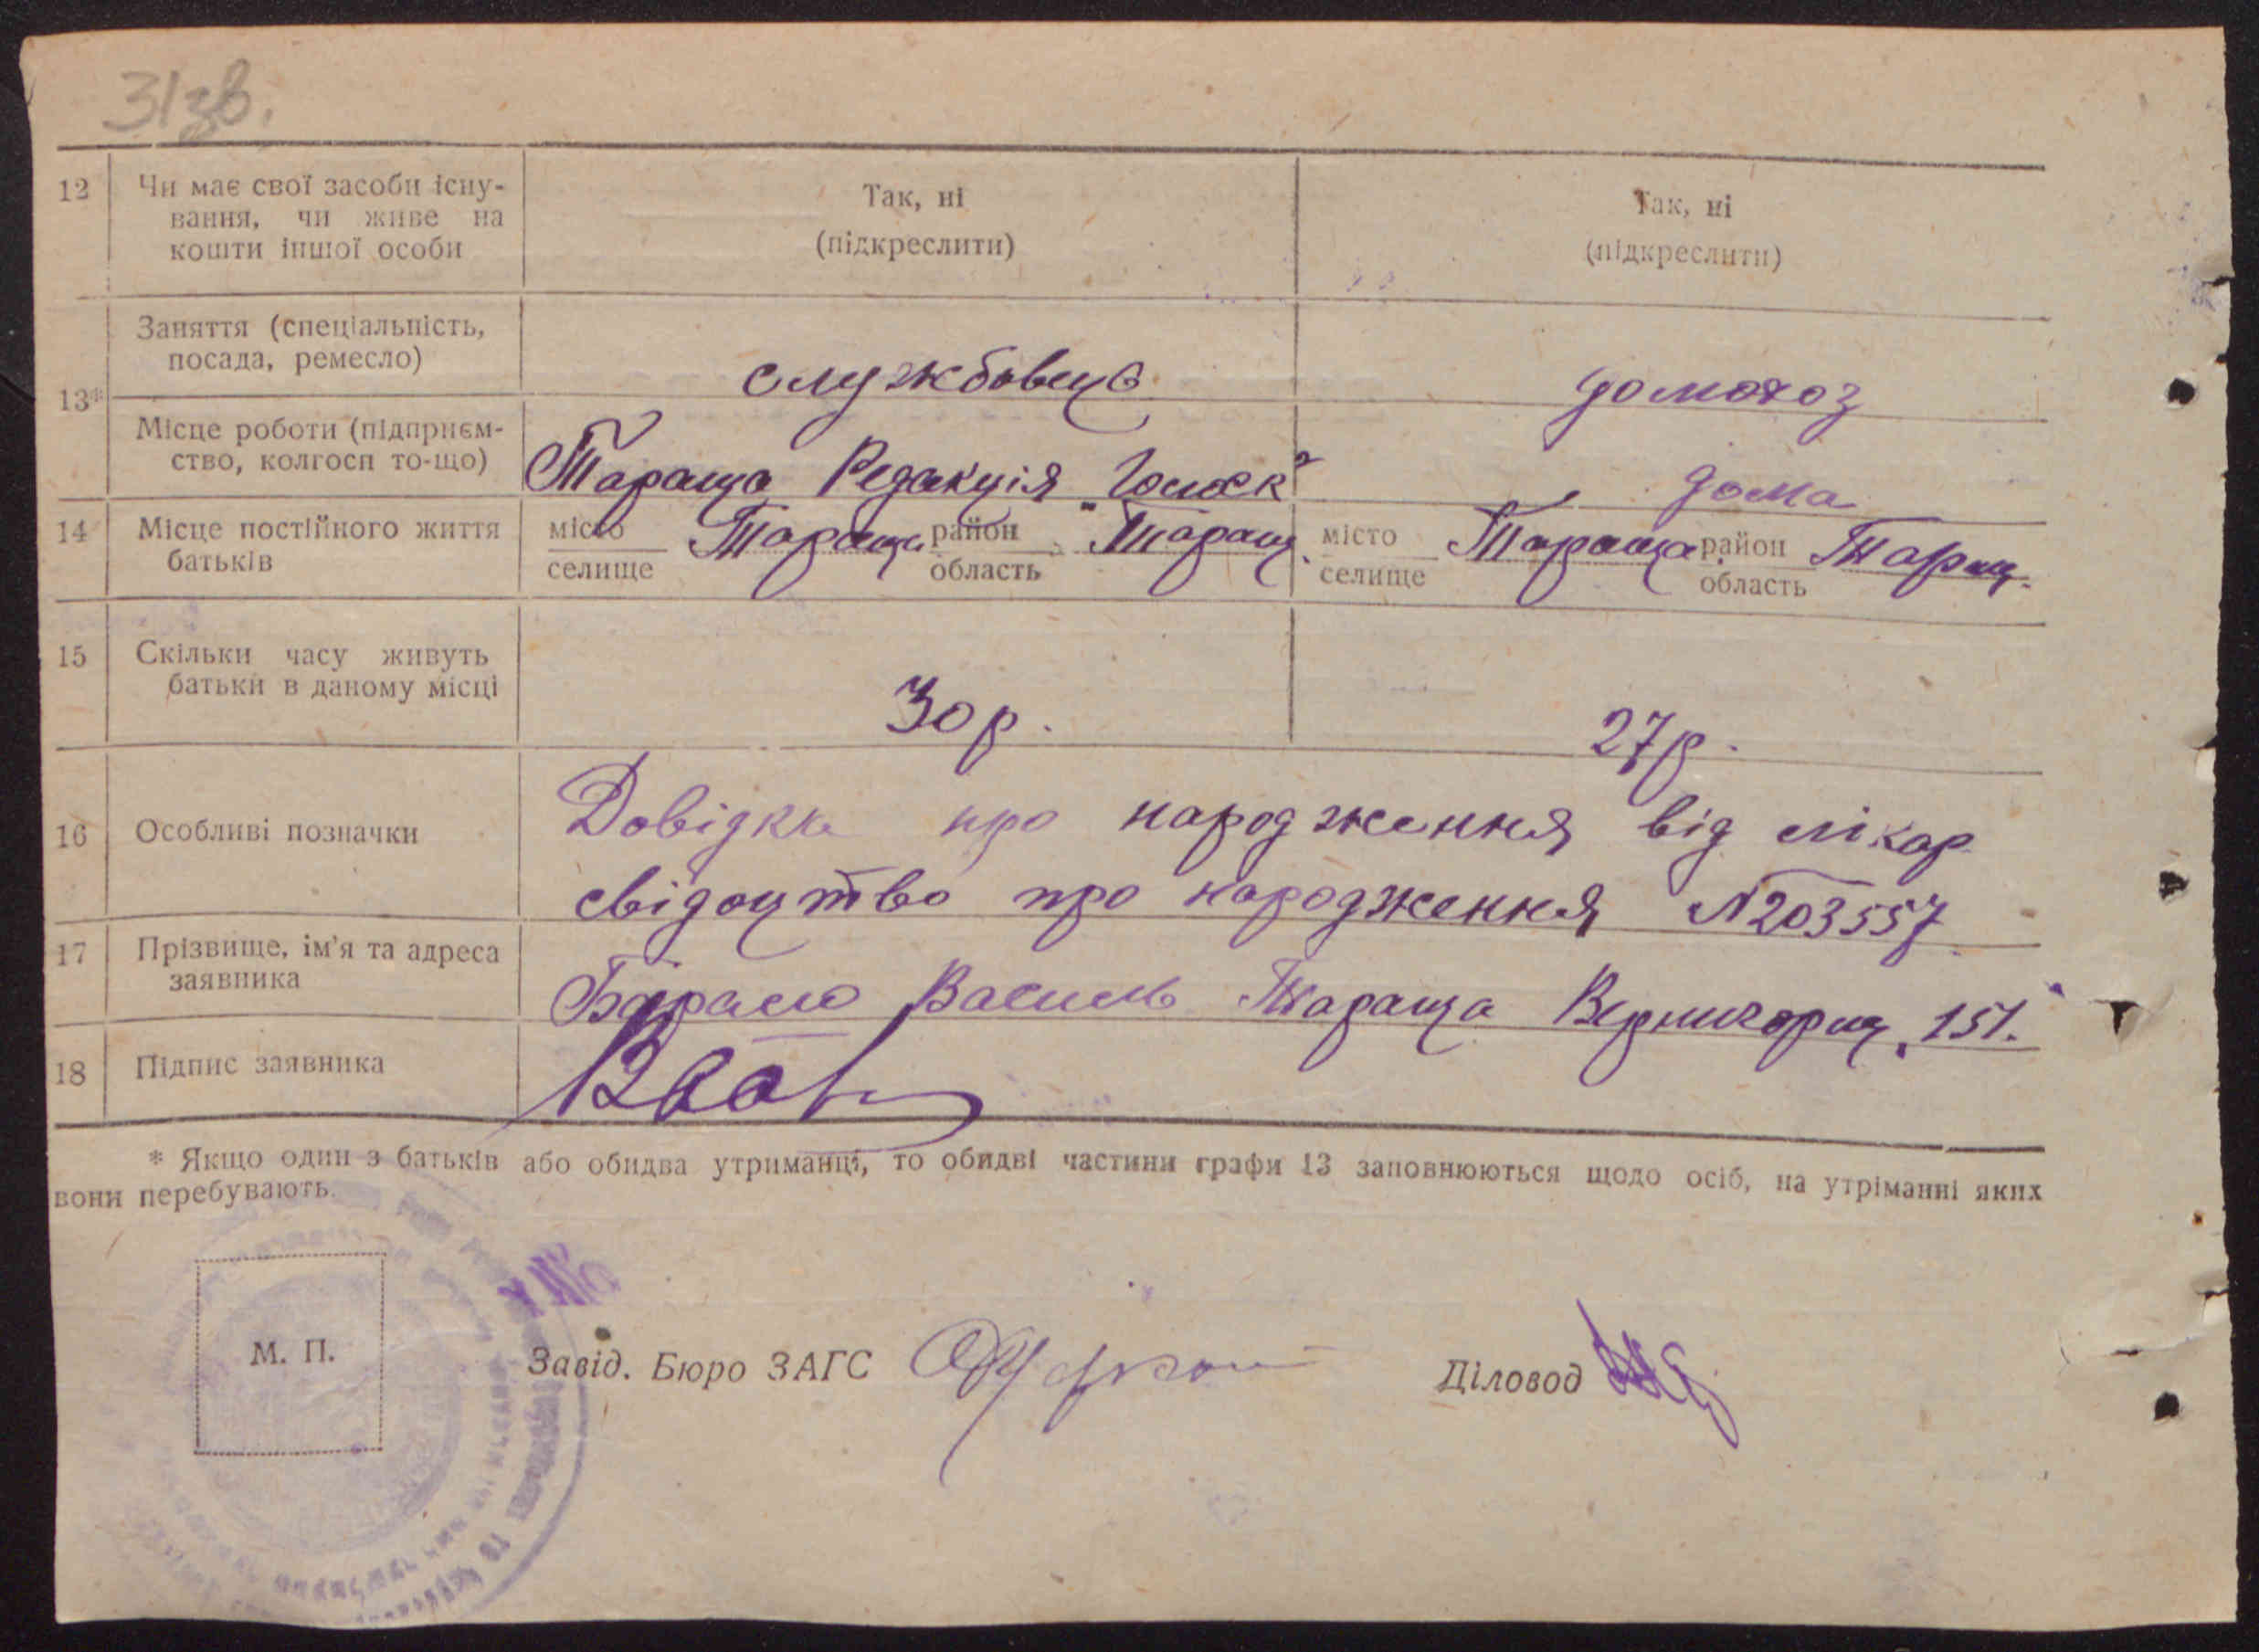 31зв.
12 Чи має свої засоби існу-
вання, чи живе на
кошти іншої особи
Так, ні
(підкреслити)
Так, ні
(підкреслити)
13*
Заняття (спеціальність,
посада, ремесло)
службовець
домогоз
Місце роботи (підприєм-
ство, колгосп то-що)
Тараща Редакція
дома
14 Місце постійного життя
батьків
місто
селище
Тараща
район
область
Таращ.
місто
селище
Тараща
район
область
Таращ.
15 Скільки часу живуть
батьки в даному місці
30 р.
27 р.
16 Особливі позначки
Довідка про народження від лікар
свідоцтво про народження №203557
17 Прізвище, ім'я та адреса
заявника
Василь Тараща 151.
18 Підпис заявника
* Якщо один з батьків або обидва утриманці, то обидві частини графи 13 заповнюються щодо осіб, на утріманні яких
вони перебувають.
М. П.
Завід. Бюро ЗАГС
Діловод